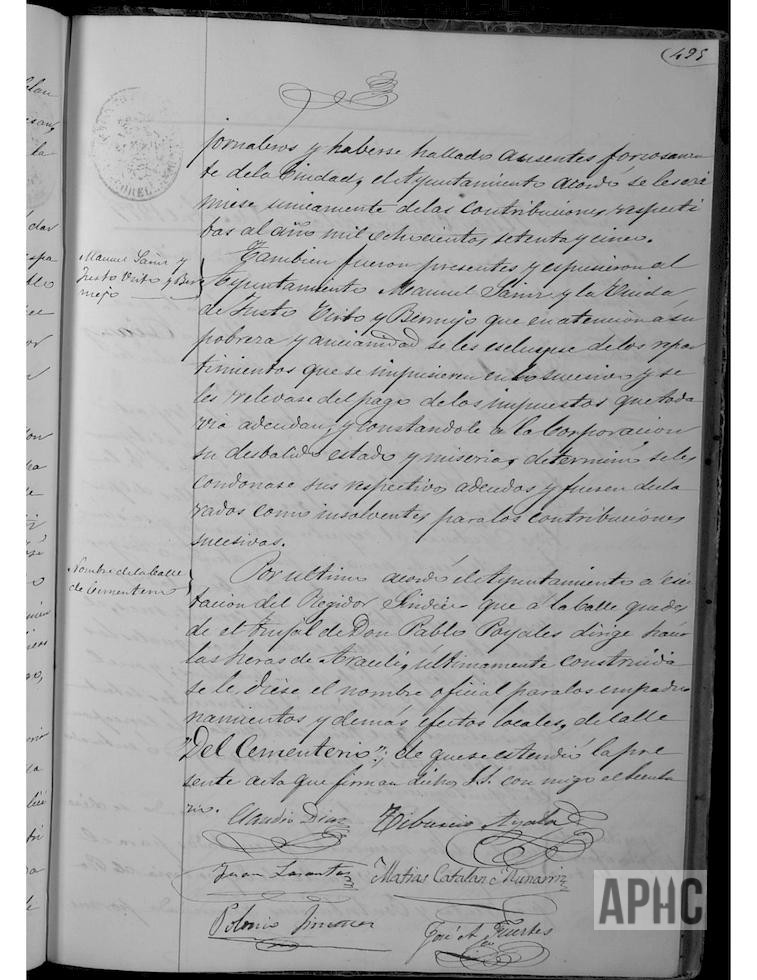 495
jornaleros y haberse hallado ausentes forzosamen
te de la Ciudad, el Ayuntamiento acordó se les exi
miese unicamente de las contribuciones respecti
bas al año mil ochocientos setenta y cinco.
Manuel Sainz y
Justo Virto y Ber
mejo
Tambien fueron presentes y espusieron al
Ayuntamiento Manuel Sainz y la Viuda
de Justo Virto y Bermejo que en atencion a su
pobreza y ancianidad se les escluyese de los repar
timientos que se impusieren en lo sucesivo y se
les relevase del pago de los impuestos que toda
via adeudan, y constandole a la Corporacion
su desbalido estado y miseria, determinó se les
condonase sus respectivos adeudos y fuesen decla
rados como insolventes para las contribuciones
sucesivas.
Nombre de la Calle
de Cementerio
Por ultimo acordó el Ayuntamiento a esci
tacion del Regidor Sindico que á la calle que des
de el trujal de Don Pablo Poyales dirige hacia
las heras de Araceli, últimamente construida
se le diese el nombre oficial para los empadro
namientos y demás efectos locales, de calle
"Del Cementerio"; de que se estendió la pre
sente acta que firman dichos SS. con migo el Secreta
rio.
Claudio Diaz Tiburcio Ayala
Juan Matias Catalan Munarriz
Polonio Jimenez José A. Fuertes
APHC